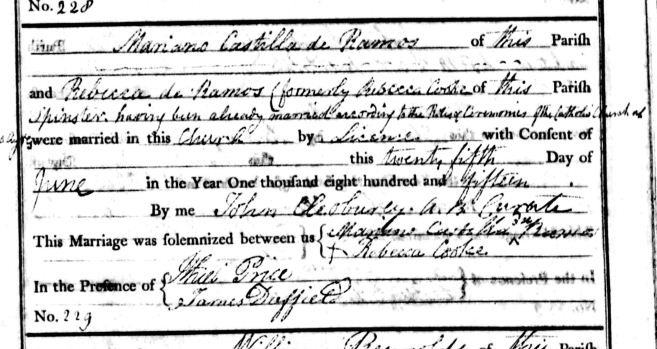 No. 228
Mariano Castilla de Ramos of this Parish
and Rebecca de Ramos (formerly Rebecca Cooke of this Parish
Spinster having been already married according to the Rites & Ceremonies of the Catholic Church at
were married in this Church by Licence with Consent of
this twenty fifth Day of
June in the Year One thousand eight hundred and fifteen.
By me John Curate
This Marriage was solemnized between us { Mariano Castilla de Ramos
Rebecca Cooke
In the Presence of { Price
James Duffield
No. 229
of this Parish